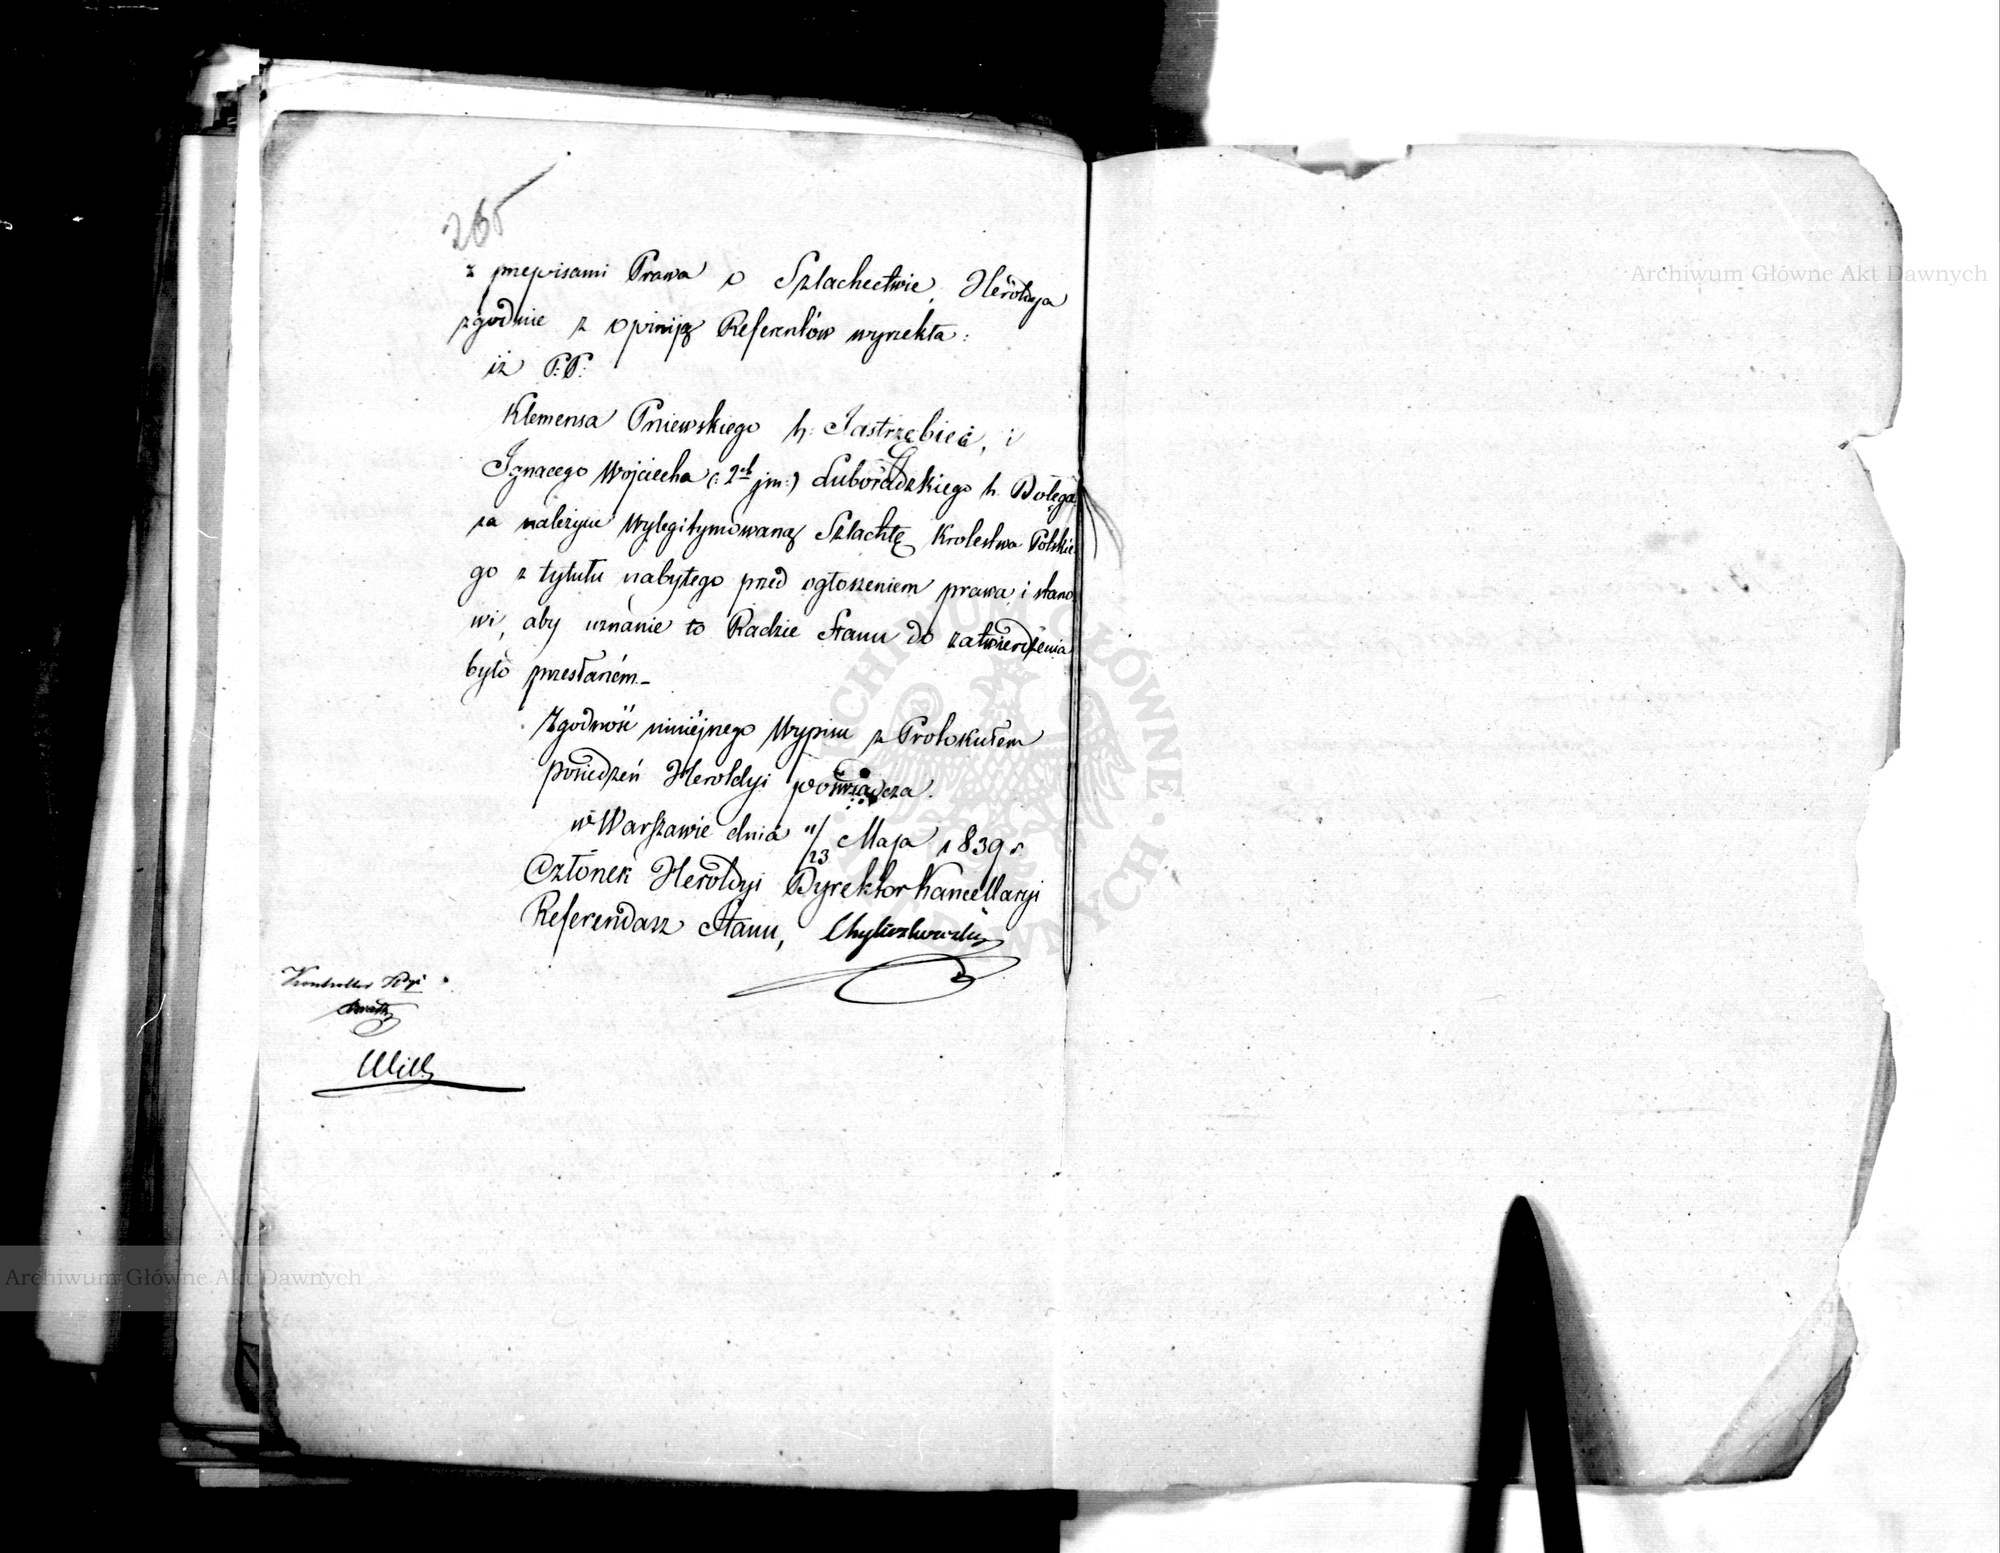 265
z przepisami Prawa o Szlachectwie, Heroldya
zgodnie z opiniją Referentów wyrzekła:
iż P:P:
Klemensa Pniewskiego h: Jastrzębieć, i
Ignacego Wojciecha (: 2ch jm:) Luboradzkiego h. Dołęga
za należycie wylegitymowaną Szlachtę Krolestwa Polskie
go z tytułu nabytego przed ogłoszeniem prawa i stano
wi, aby uznanie to Radzie Stanu do zatwierdzenia
było przesłaném.–
Zgodność niniéjszego Wypisu z Protokułem
posiedzeń Heroldyi poświadcza.
w Warszawie dnia 11/23 Maja 1839 r
Członek Heroldyi Dyrektor Kancellaryi
Referendarz Stanu,
Kontroller
Archiwum Główne Akt Dawnych
Archiwum Główne Akt Dawnych
ARCHIWUM GŁÓWNE AKT DAWNYCH